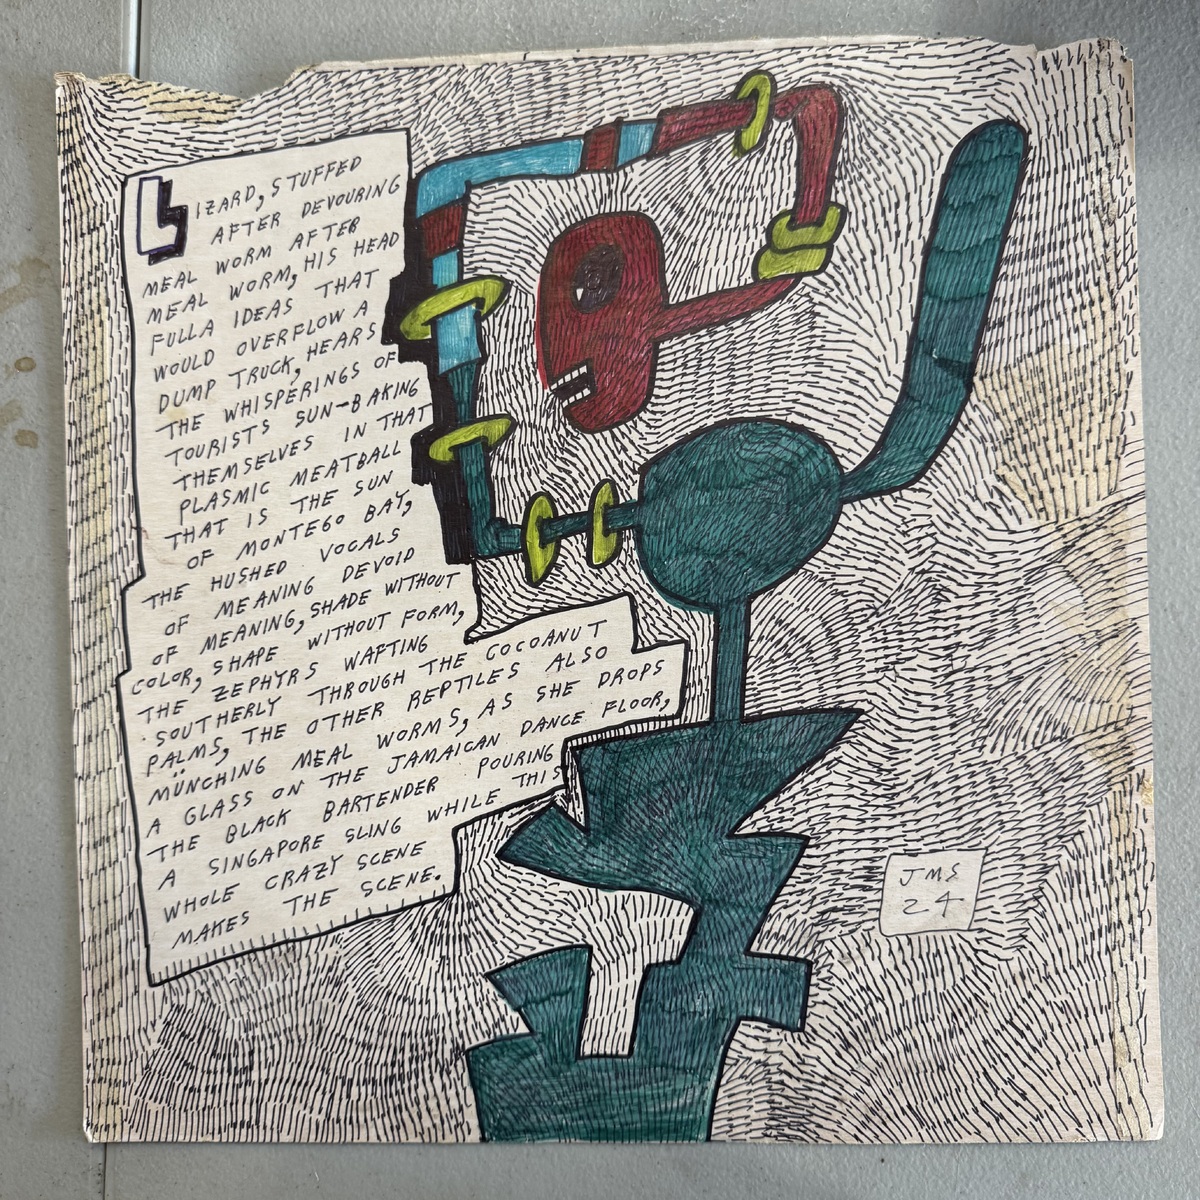 LIZARD, STUFFED
AFTER DEVOURING
MEAL WORM AFTER
MEAL WORM, HIS HEAD
FULLA IDEAS THAT
WOULD OVERFLOW A
DUMP TRUCK, HEARS
THE WHISPERINGS OF
TOURISTS SUN-BAKING
THEMSELVES IN THAT
PLASMIC MEATBALL
THAT IS THE SUN
OF MONTEGO BAY,
THE HUSHED VOCALS
OF MEANING DEVOID
OF MEANING, SHADE WITHOUT
COLOR, SHAPE WITHOUT FORM,
THE ZEPHYRS WAFTING
SOUTHERLY THROUGH THE COCOANUT
PALMS, THE OTHER REPTILES ALSO
MÜNCHING MEAL WORMS, AS SHE DROPS
A GLASS ON THE JAMAICAN DANCE FLOOR,
THE BLACK BARTENDER POURING
A SINGAPORE SLING WHILE THIS
WHOLE CRAZY SCENE
MAKES THE SCENE.
JMS
24